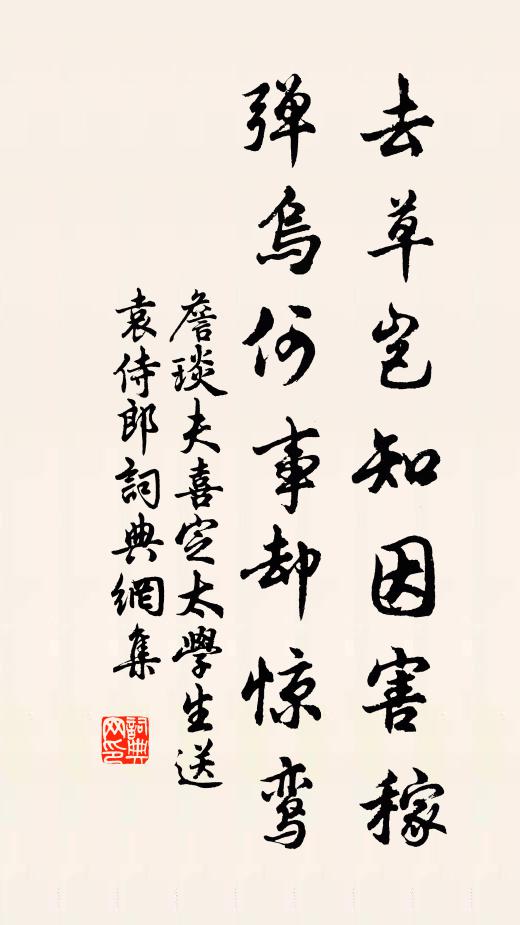 去草岂知因害稼
弹乌何事却惊鸾
詹琰夫喜定太學生送
袁侍郎詞典網集
詞典
网印